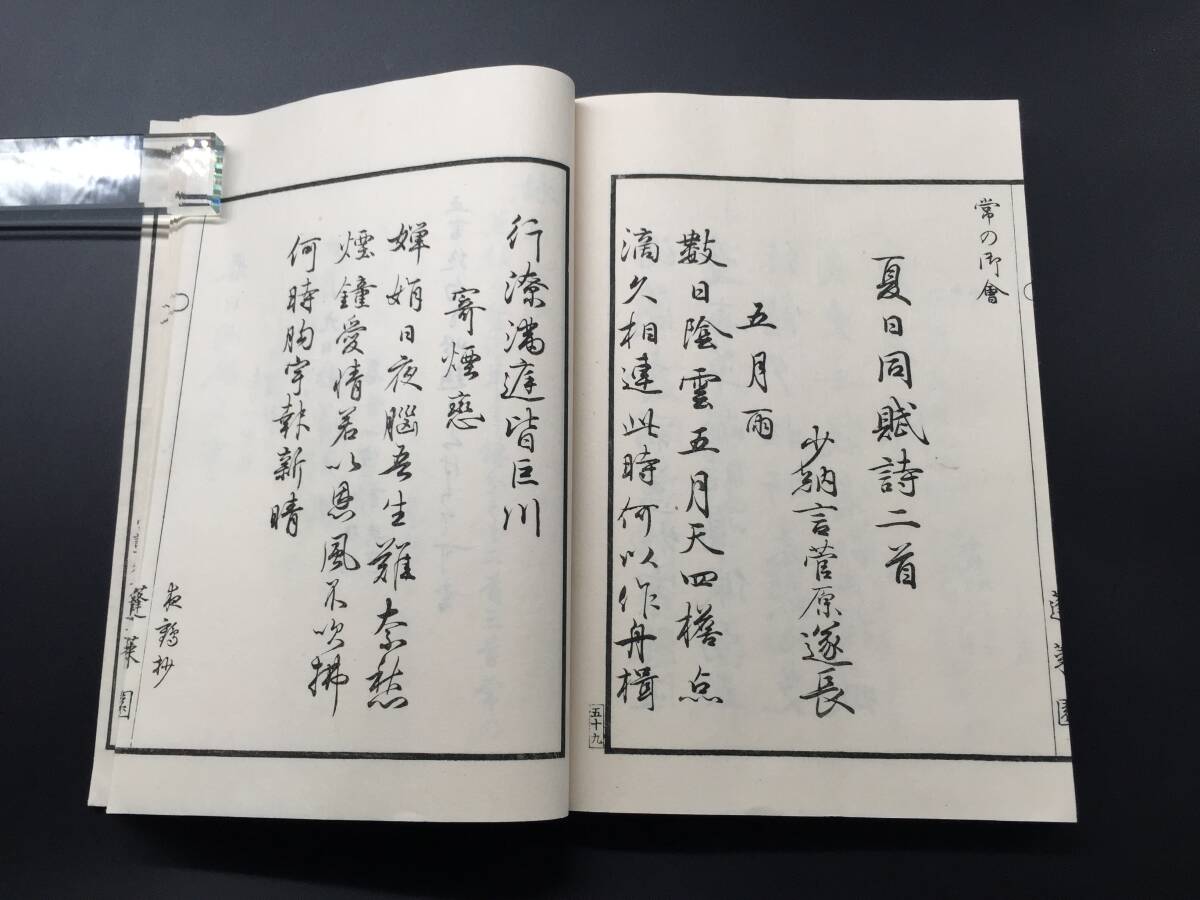 常の御會
夏日同賦詩二首
少納言菅原遂長
五月雨
數日陰雲五月天四檐点
滴久相連此時何以作舟楫
五十九
行潦滿庭皆巨川
寄煙戀
嬋娟日夜腦吾生難奈愁
煙鐘愛情若以恩風不吹拂
何時胸宇新晴
夜鶴抄
蓬萊園